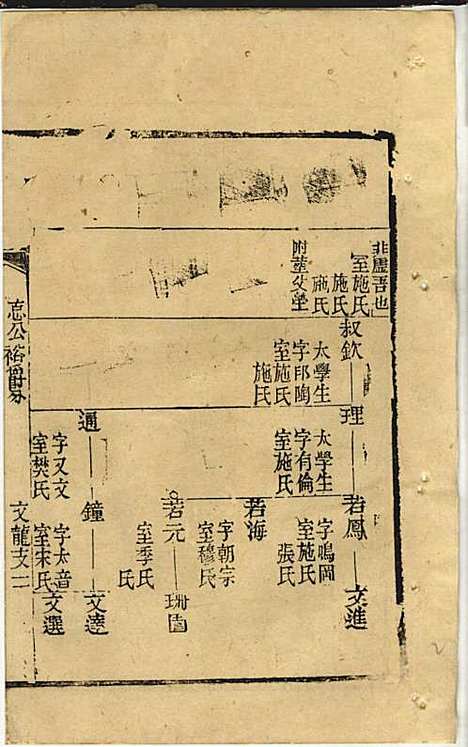 非虛吾也
室施氏
施氏
施氏
附塋父塋
叔欽
太學生
字邛陶
室施氏
施氏
理
太學生
字有倫
室施氏
若鳳
字鳴岡
室施氏
張氏
文進
若海
字朝宗
室穆氏
若元
室季氏
氏
珊
通
字又文
室樊氏
鐘
字太音
室宋氏
文達
文選
忘公裕爵
文龍支二
2